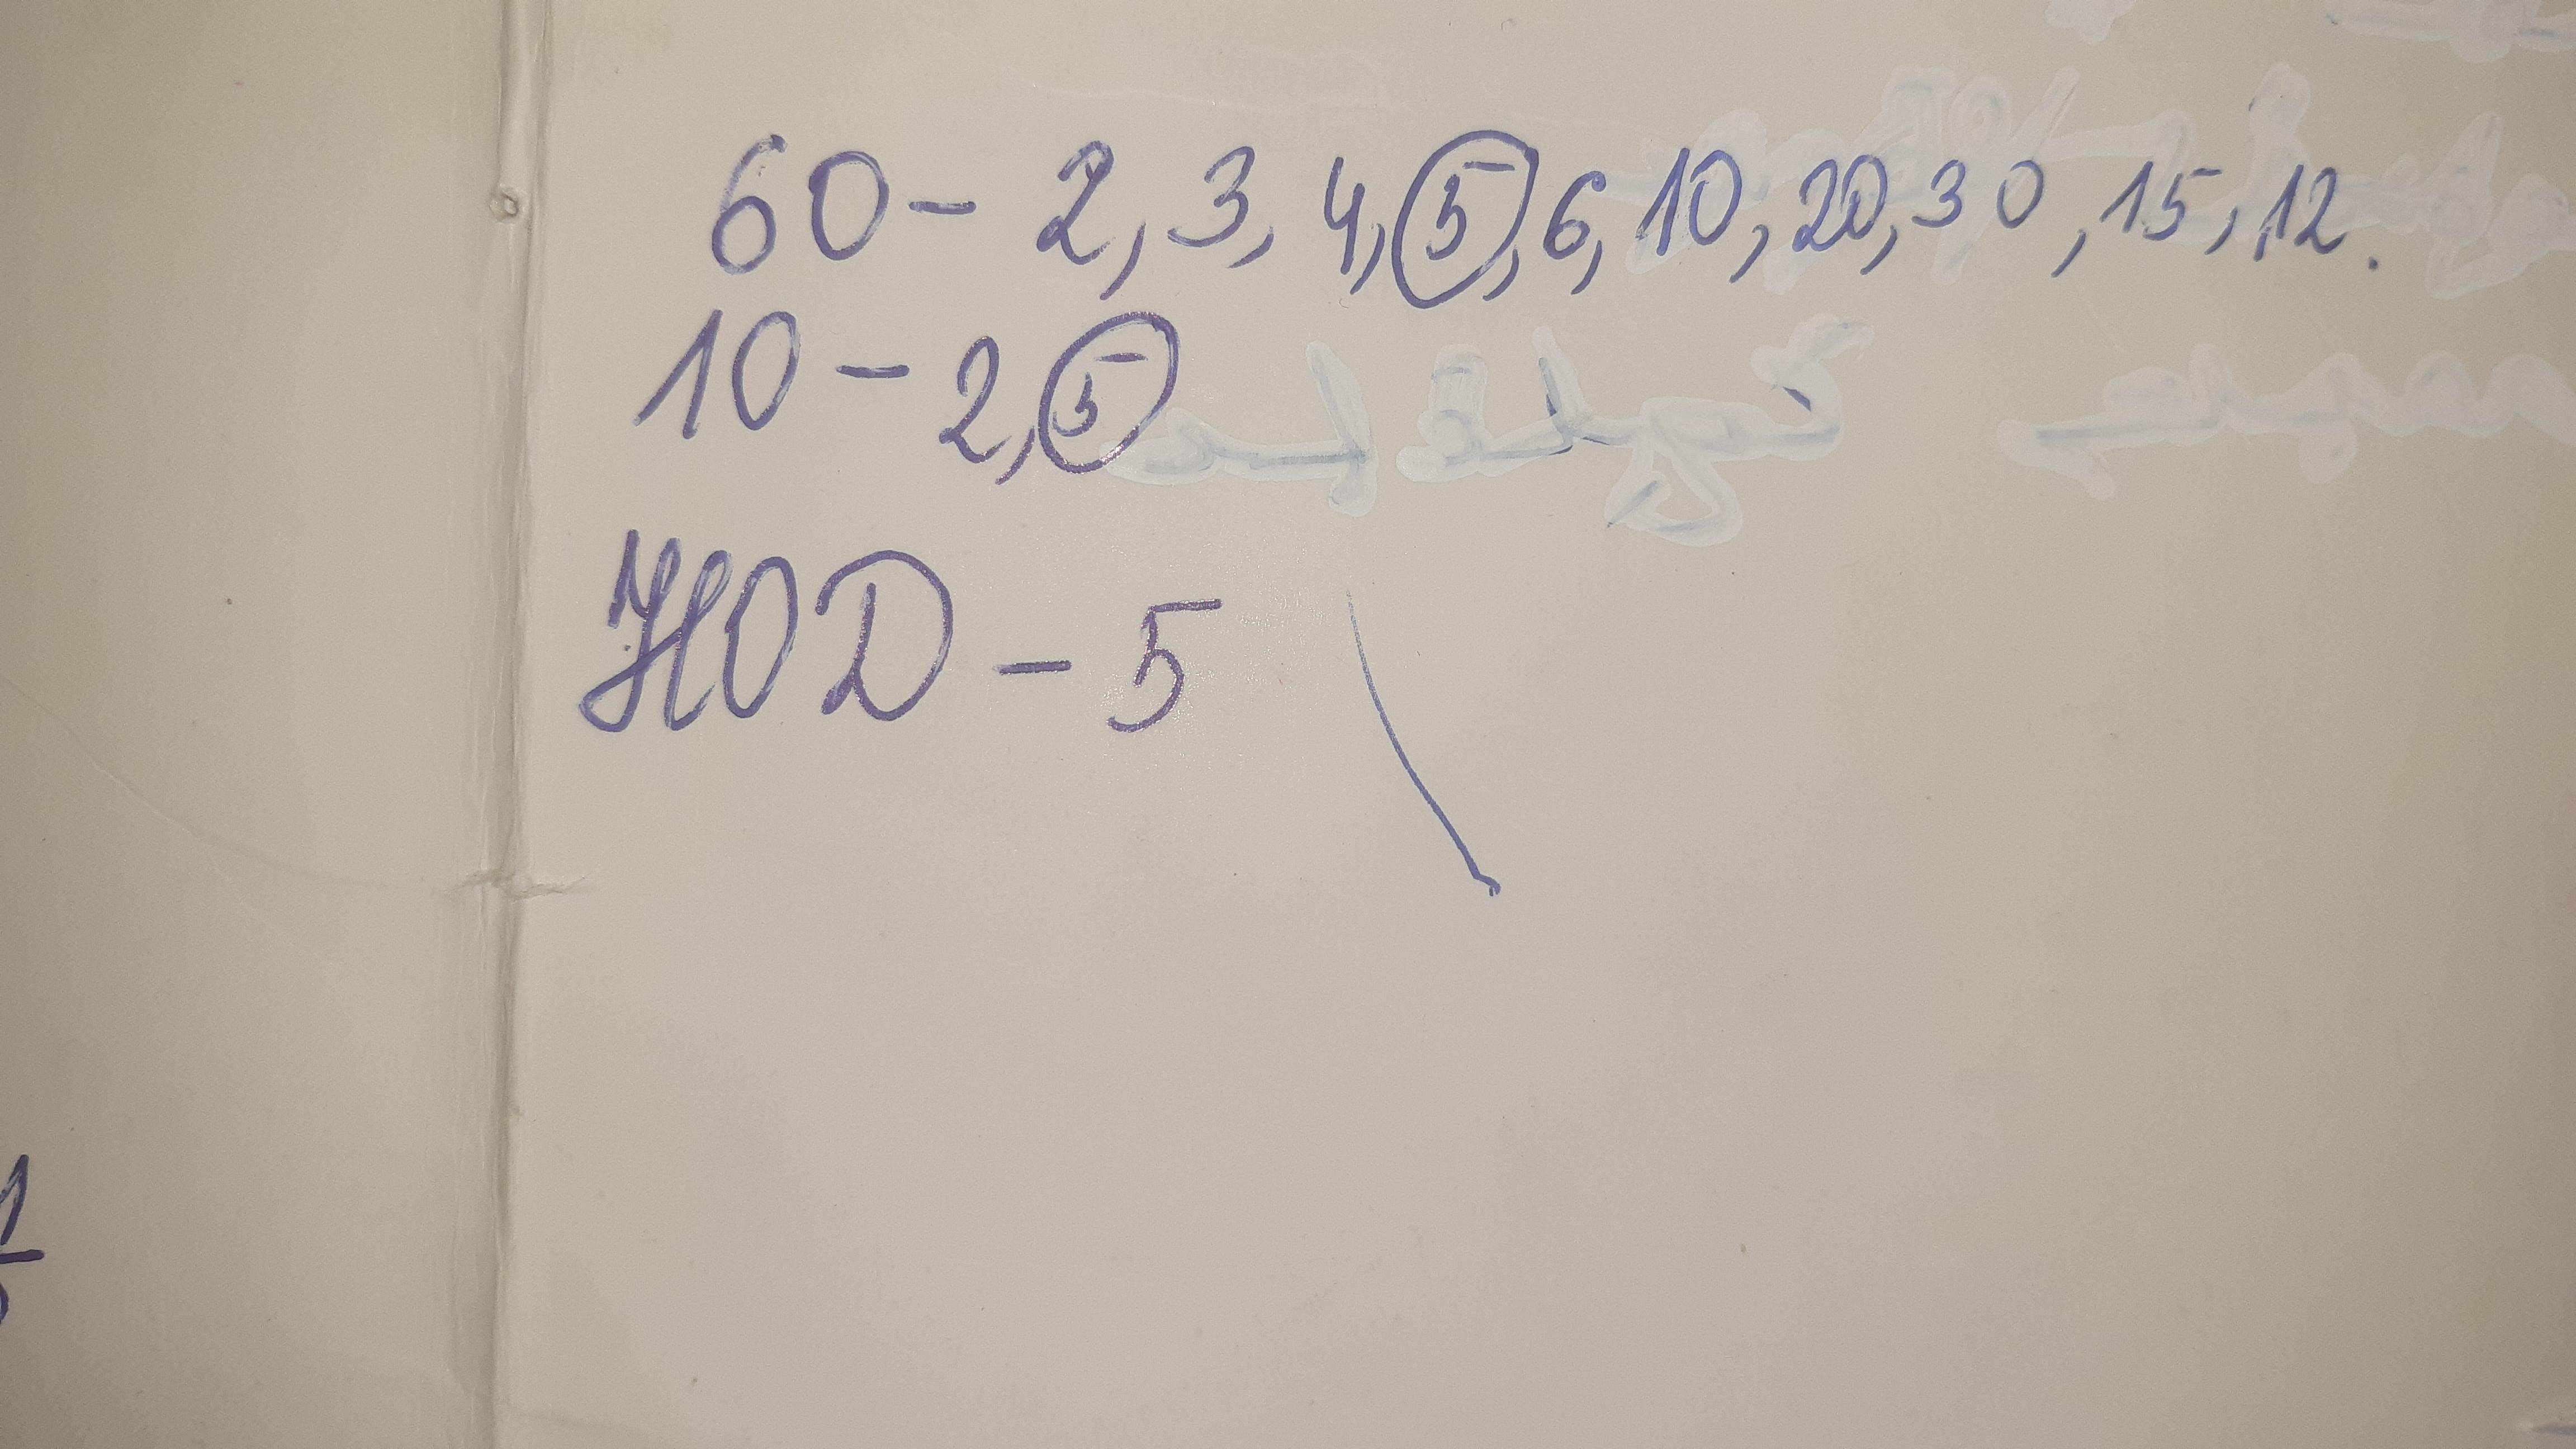 60 - 2, 3, 4, 5, 6, 10, 20, 30, 15, 12.
10 - 2, 5
НОД - 5
1